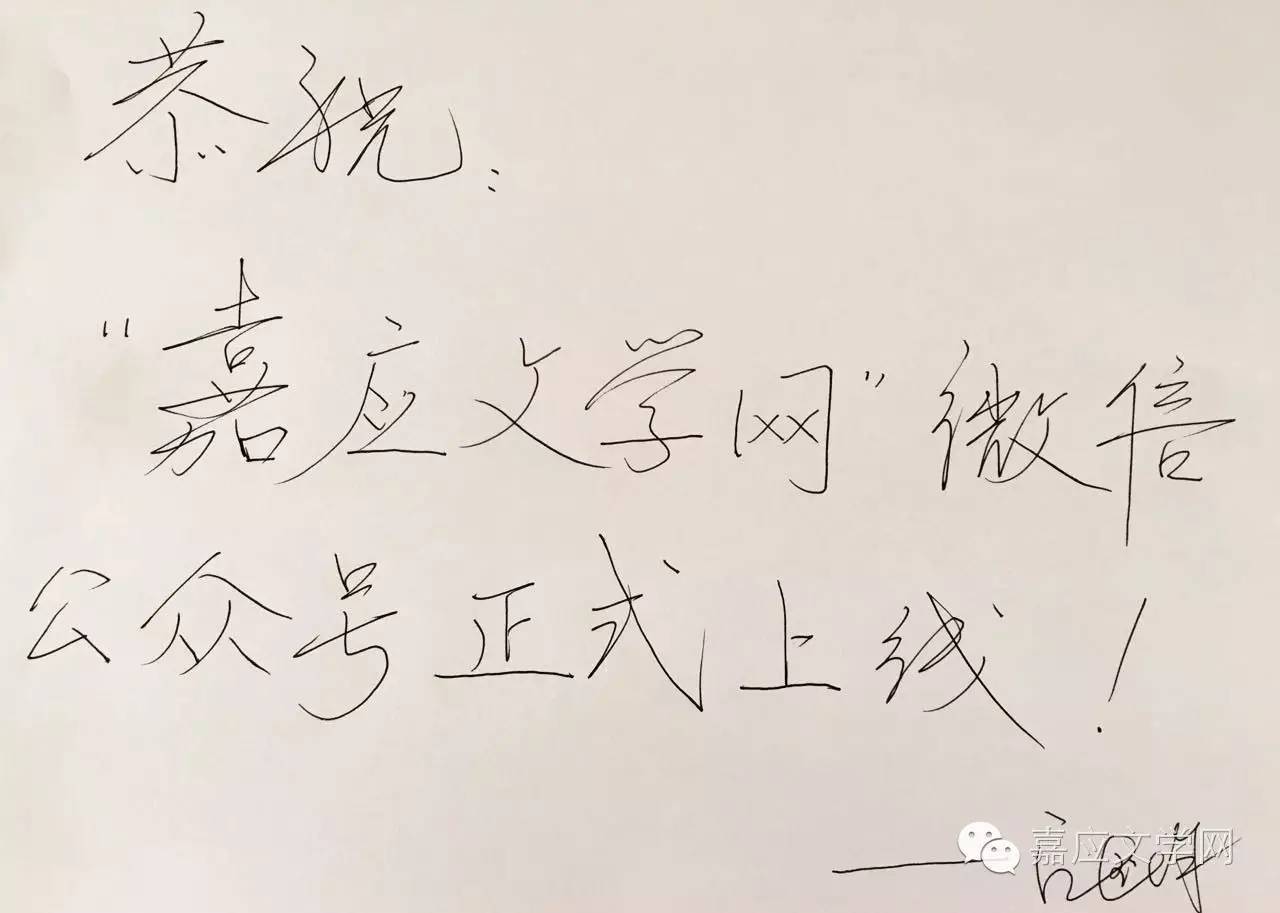 恭祝：
“嘉应文学网”微信
公众号正式上线！
嘉应文学网